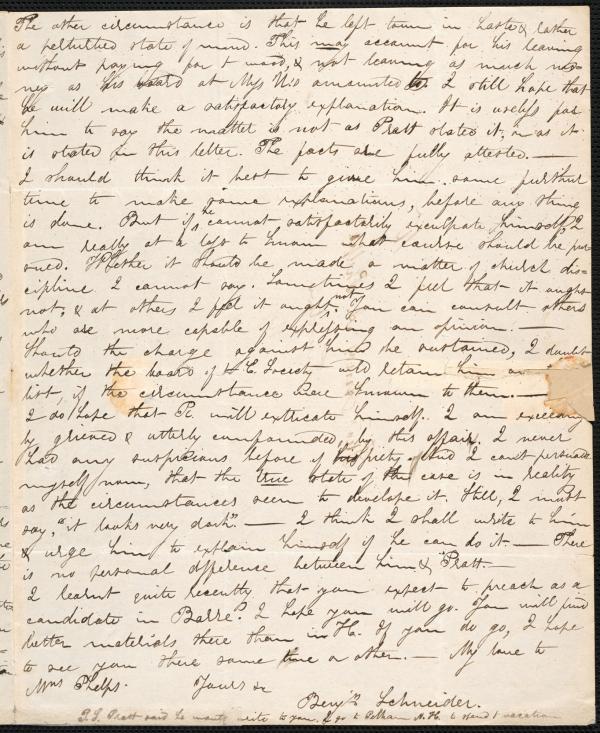 The other circumstance is that he left town in haste & rather
a perturbed state of mind. This may account for his leaving
without paying for t wood, & not leaving as much mo-
ney as his board at Mrs N's amounted to I still hope that
he will make a satisfactory explanation. It is useless for
him to say the matter is not as Pratt stated it, or as it
is stated in this letter. The facts are fully attested. —
I should think it best to give him some further
time to make some explanations, before any thing
is done. But if he cannot satisfactorily exculpate himself, I
am really at a loss to know what course should be pur
sued. Whether it should be made a matter of church dis-
cipline I cannot say. Sometimes I feel that it ought
not, & at others I feel it ought not. You can consult others
who are more capable of expressing an opinion. —
Should the charge against him be sustained, I doubt
whether the board of H. E. Society would retain him on
list, if the circumstances were known to them. —
I do hope that R. will extricate himself. I am exceeding
ly grieved & utterly confounded by this affair. I never
had any suspicions before of his piety, and I can't persuade
myself now, that the true state of the case is in reality
as the circumstances seem to develope it. Still, I must
say, "it looks very dark". — I think I shall write to him
& urge him to explain himself if he can do it — There
is no personal difference between him & Pratt. —
I learnt quite recently that you expect to preach as a
candidate in Barre. I hope you will go. You will find
better materials there than in H. If you do go, I hope
to see you there some time or other. — My love to
Mrs Phelps. Yours &c
Benj'n Schneider.
P.S. Pratt said he wants write to you. I go to Pelham N.H. to spend t vacation